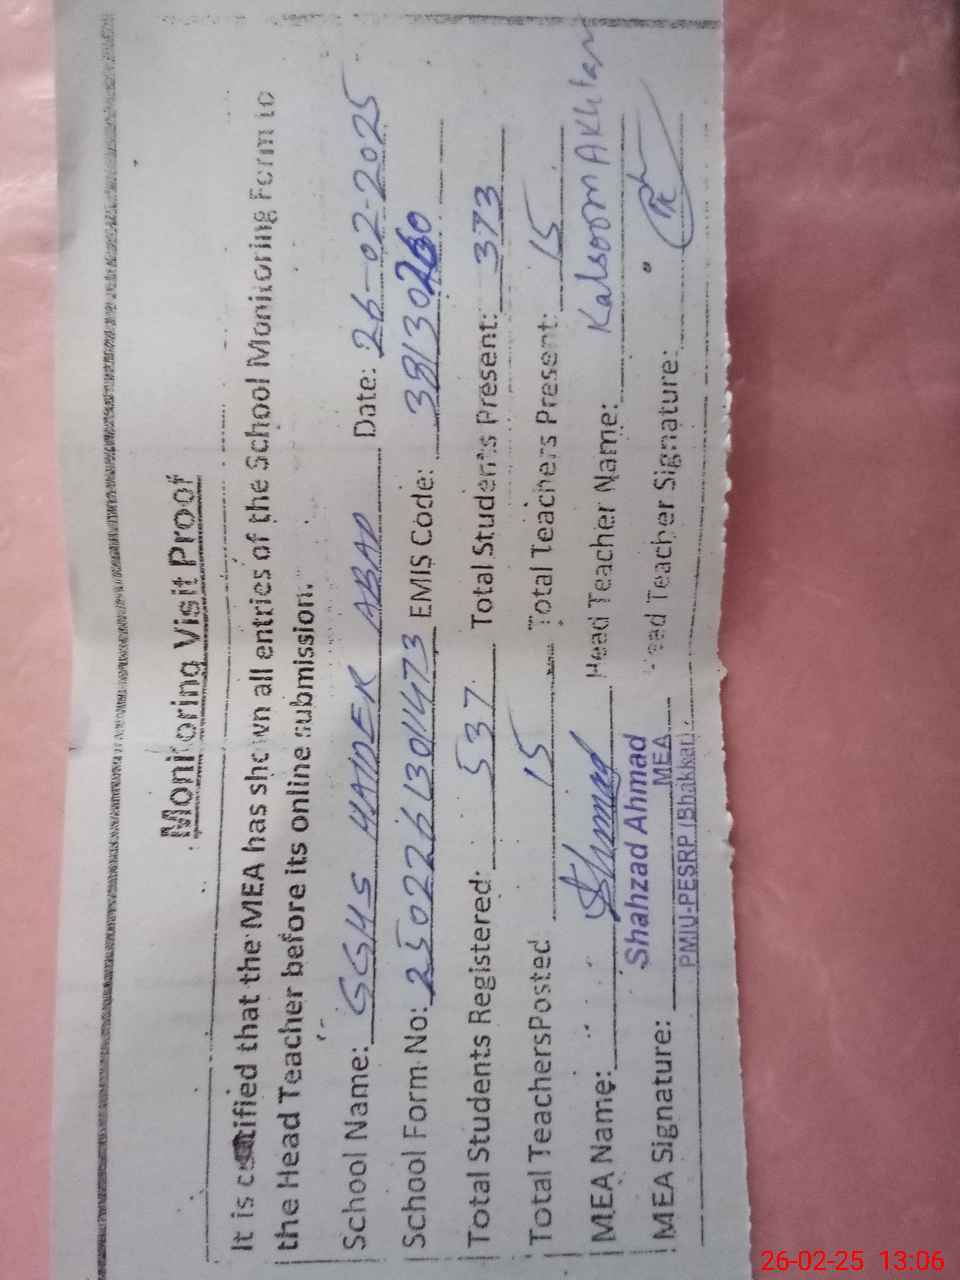 Monitoring Visit Proof
It is certified that the MEA has shown all entries of the School Monitoring Form to
the Head Teacher before its online submission.
School Name: GGHS HAIDER ABAD Date: 26-02-2025
School Form No: 25022613011473 EMIS Code: 38130260
Total Students Registered: 537 Total Students Present: 373
Total Teachers Posted 15 Total Teachers Present: 15
MEA Name: Head Teacher Name: Kalsoom Akhtar
Shahzad Ahmad
MEA Signature: MEA Head Teacher Signature:
PMIU-PESRP (Bhakkar)
26-02-25 13:06